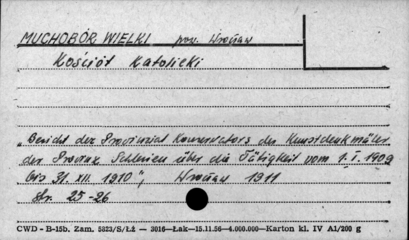 MUCHOBÓR WIELKI pow. Wrocław
Kościół Katolicki
„Bericht der Provinzial Konservators der Kunstdenkmäler
der Provinz Schlesien über die Tätigkeit vom 1. I. 1909
bis 31. XII. 1910", Wrocław 1911
Str. 25-26
CWD - B-15b. Zam. 5823/S/Łż — 3016—Łak—15.11.56—4.000.000—Karton kl. IV A1/200 g